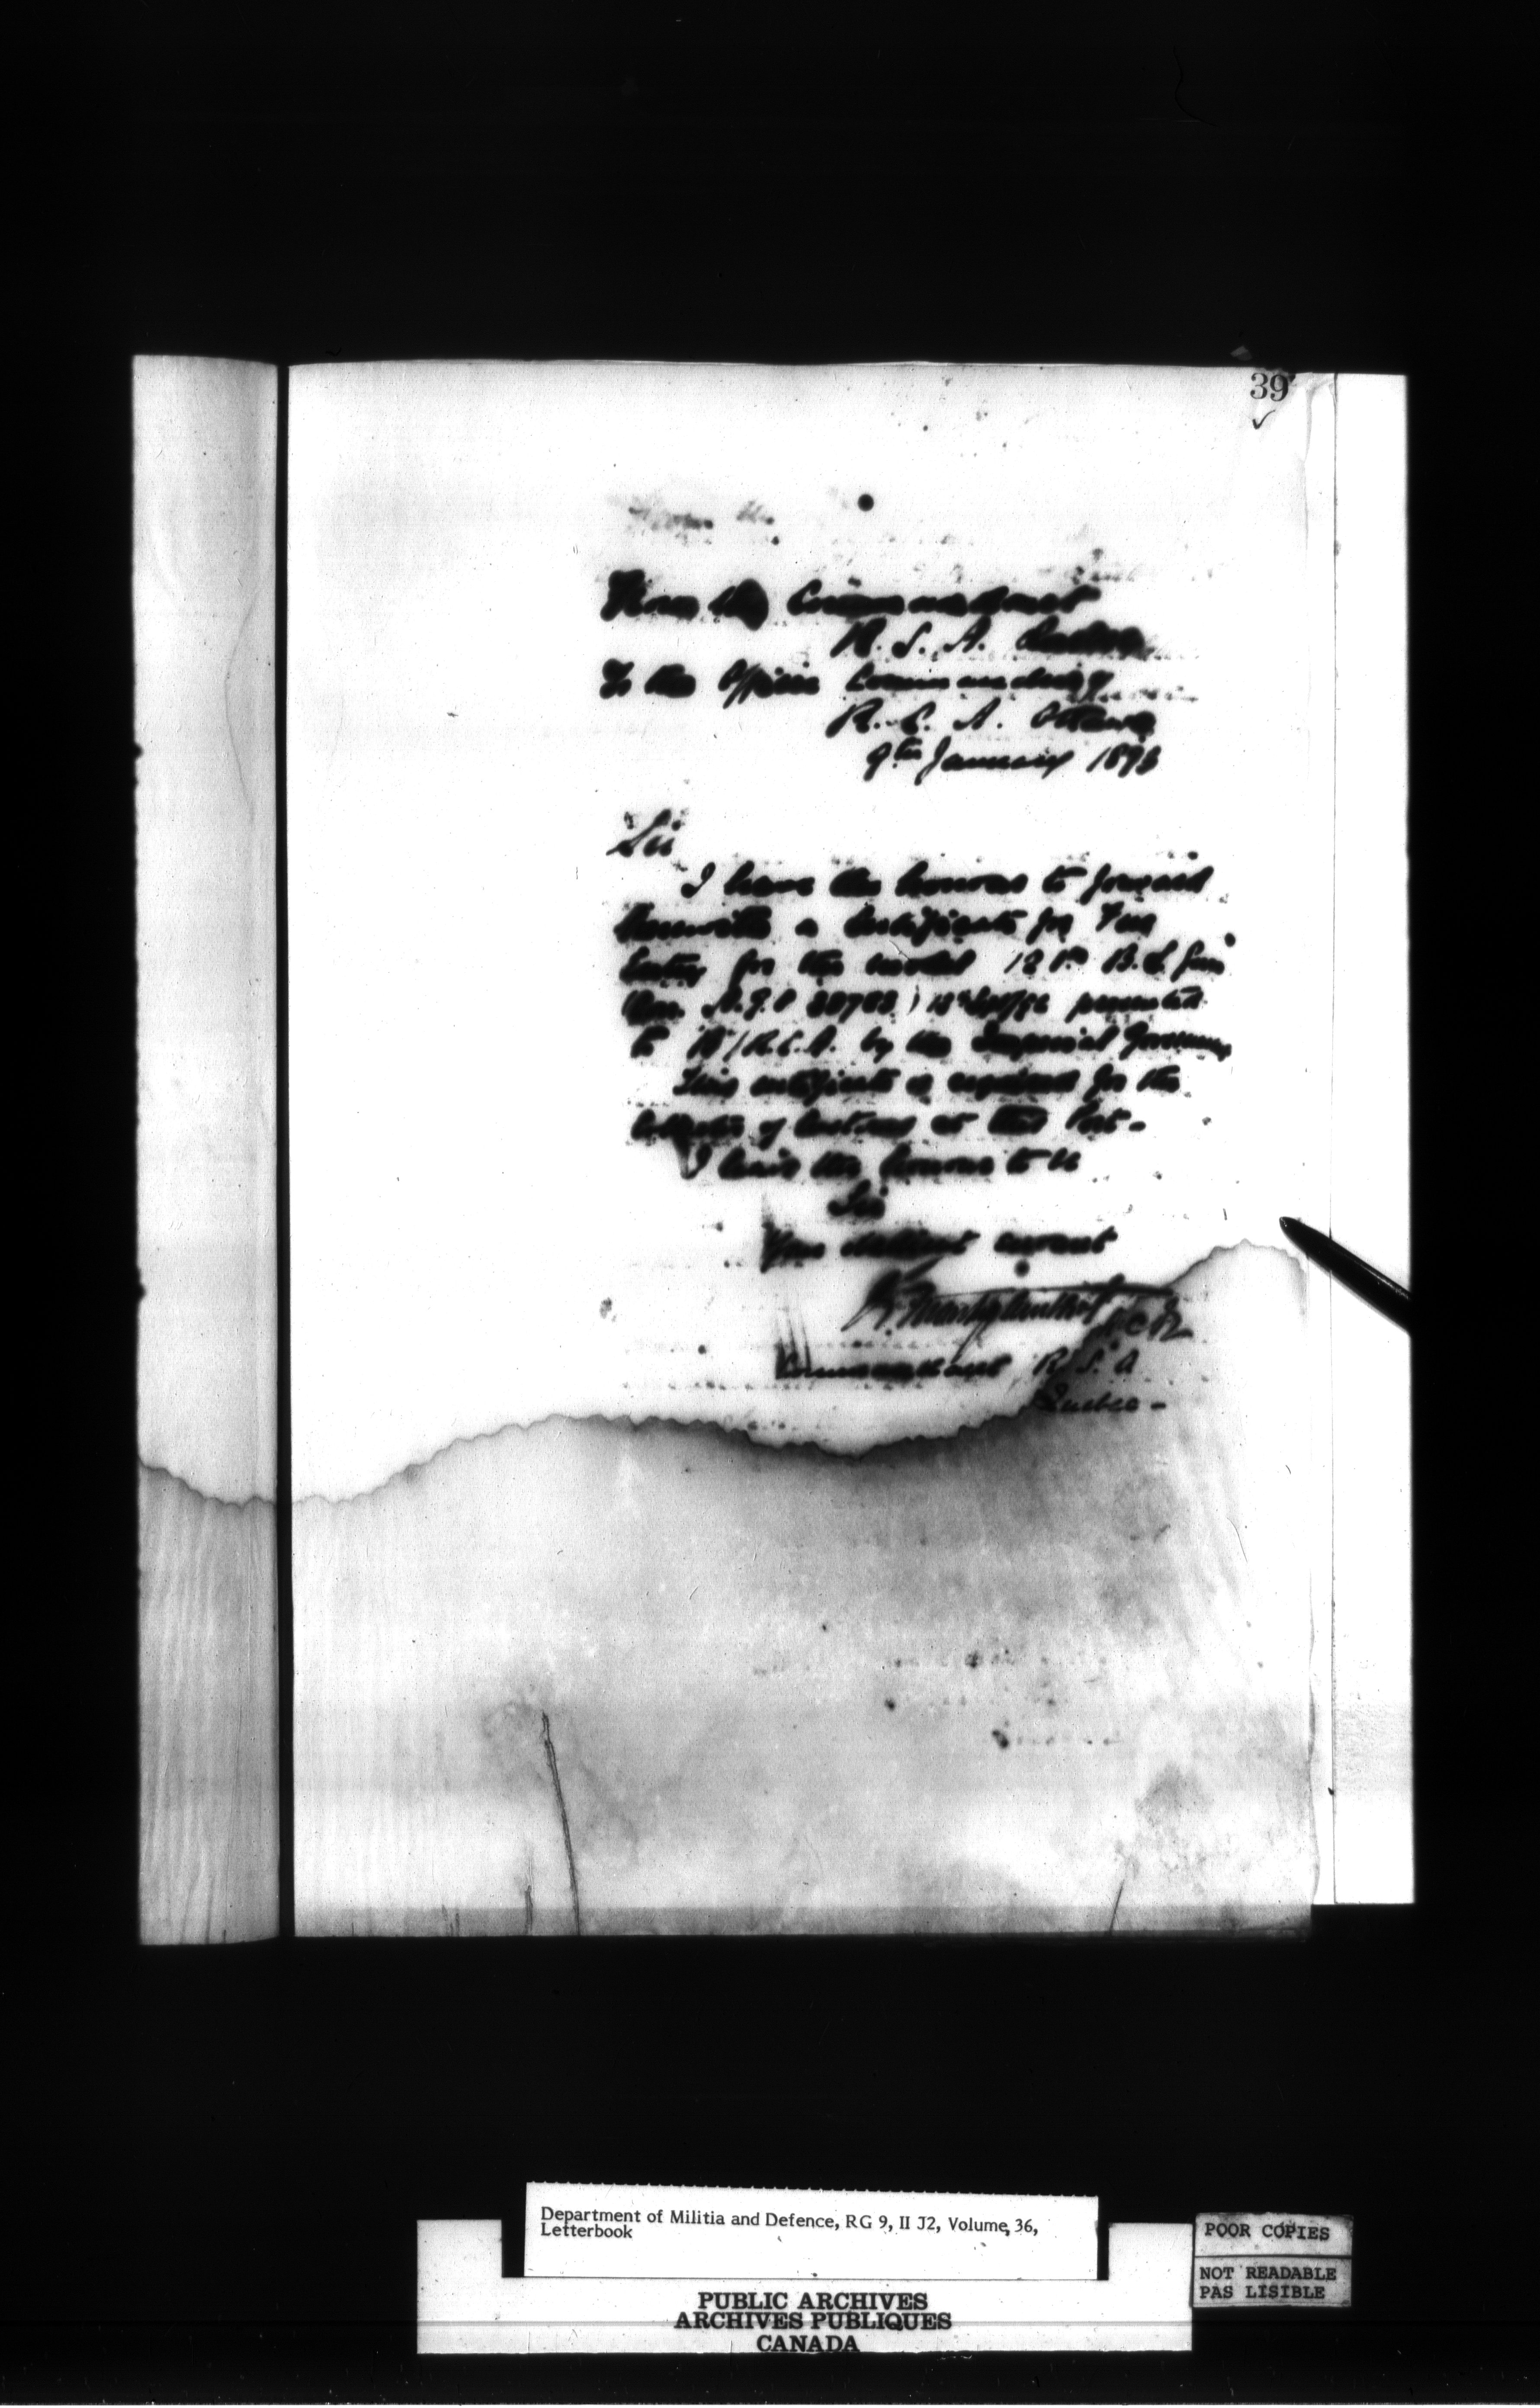 39
From the Commandant
R. S. A. Quebec
To the Officer Commanding
R. C. A. Ottawa
9th January 1893
Sir
I have the honour to forward
herewith a Certificate for Free
Entry for the model 12 Pr B. L. Gun
presented
to B/R.C.A. by the Imperial
This certificate is required for the
Collector of Customs at this Port-
I have the honour to be
Sir
Your obedient servant
Commandant R. S. A
Quebec -
Department of Militia and Defence, RG 9, II J2, Volume 36,
Letterbook
PUBLIC ARCHIVES
ARCHIVES PUBLIQUES
CANADA
POOR COPIES
NOT READABLE
PAS LISIBLE